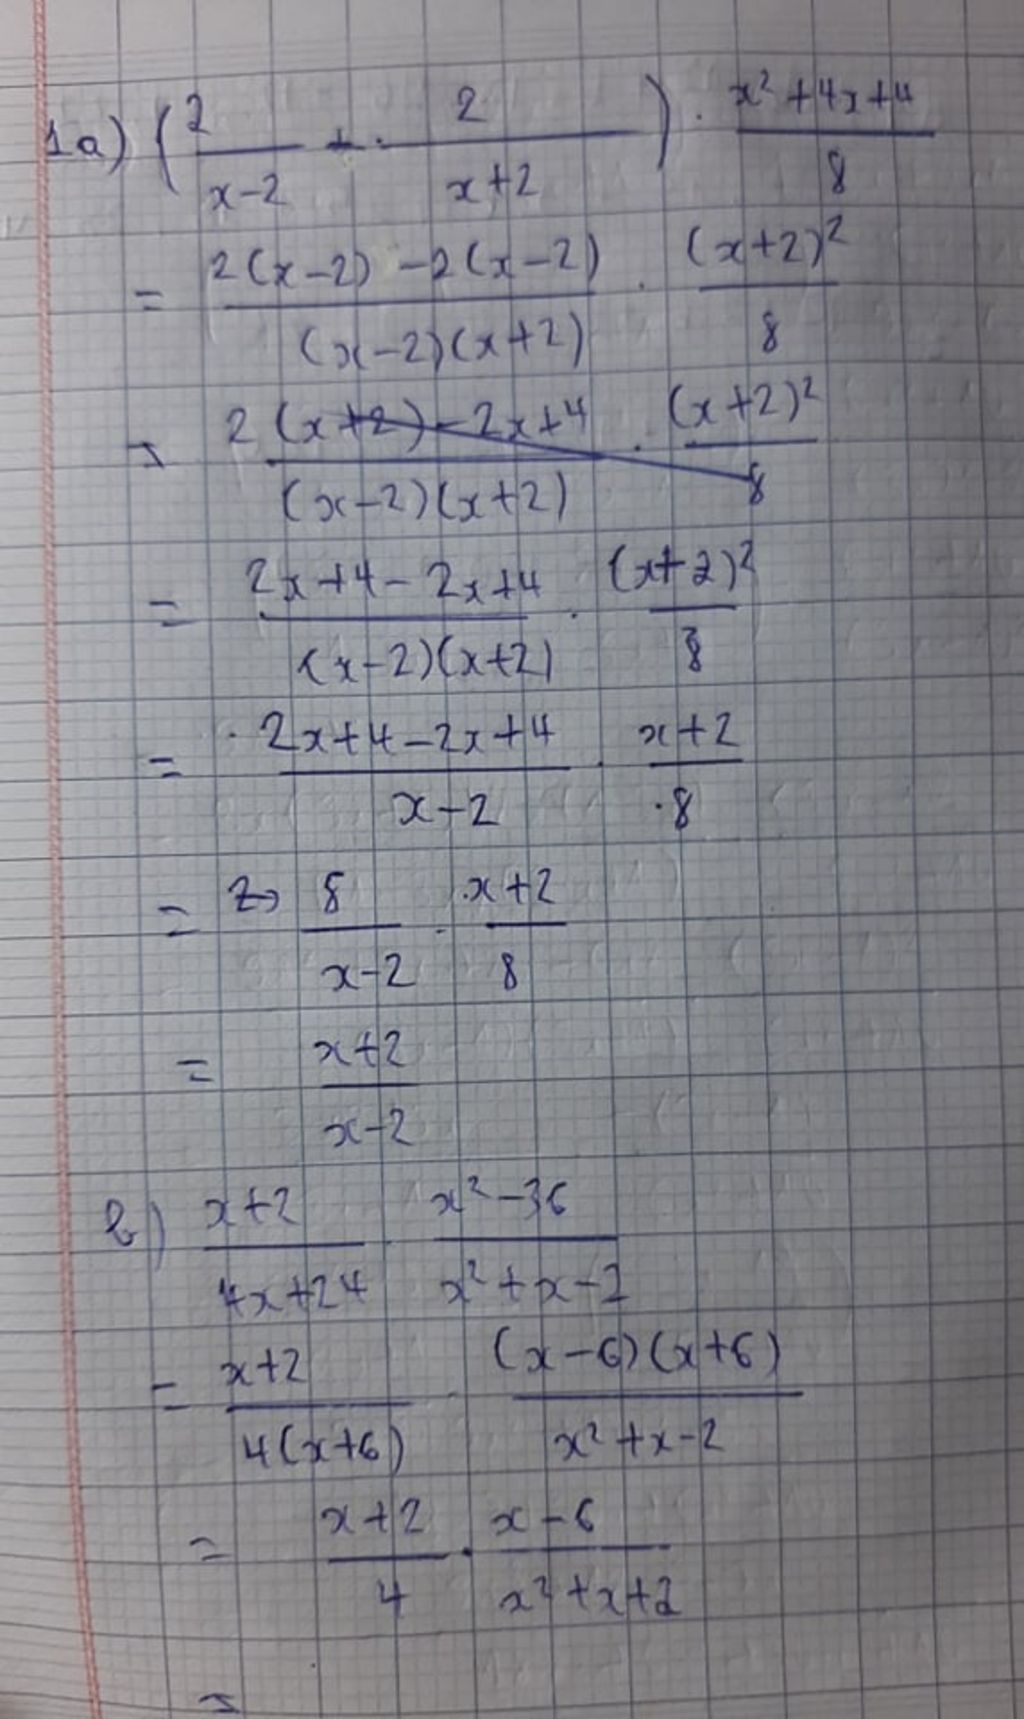 1a) (2/(x-2) + 2/(x+2)) · (x²+4x+4)/8
= (2(x-2) -2(x-2))/((x-2)(x+2)) · (x+2)²/8
= (2(x+2)-2x+4)/((x-2)(x+2)) · (x+2)²/8
= (2x+4-2x+4)/((x-2)(x+2)) · (x+2)²/8
= (2x+4-2x+4)/(x-2) · (x+2)/8
= 8/(x-2) · (x+2)/8
= (x+2)/(x-2)
b) (x+2)/(4x+24) · (x²-36)/(x²+x-2)
= (x+2)/(4(x+6)) · ((x-6)(x+6))/(x²+x-2)
= (x+2)/4 · (x-6)/(x²+x+2)
=